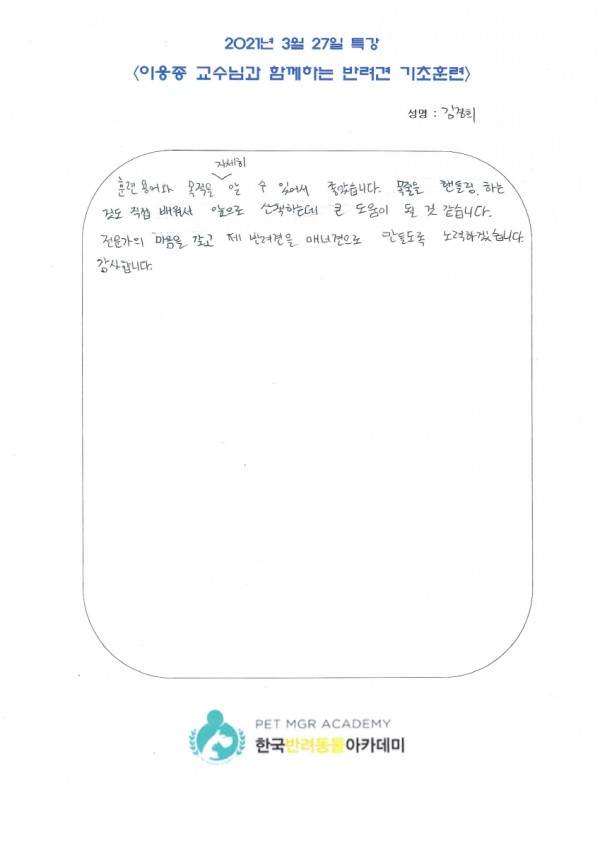 2021년 3월 27일 특강
<이웅종 교수님과 함께하는 반려견 기초훈련>
성명 : 김경희
자세히
훈련 용어와 목적을 알 수 있어서 좋았습니다. 목줄을 핸들링 하는
것도 직접 배워서 앞으로 산책하는데 큰 도움이 될 것 같습니다.
전문가의 마음을 갖고 제 반려견을 매너견으로 만들도록 노력하겠습니다.
감사합니다.
PET MGR ACADEMY
한국반려동물아카데미